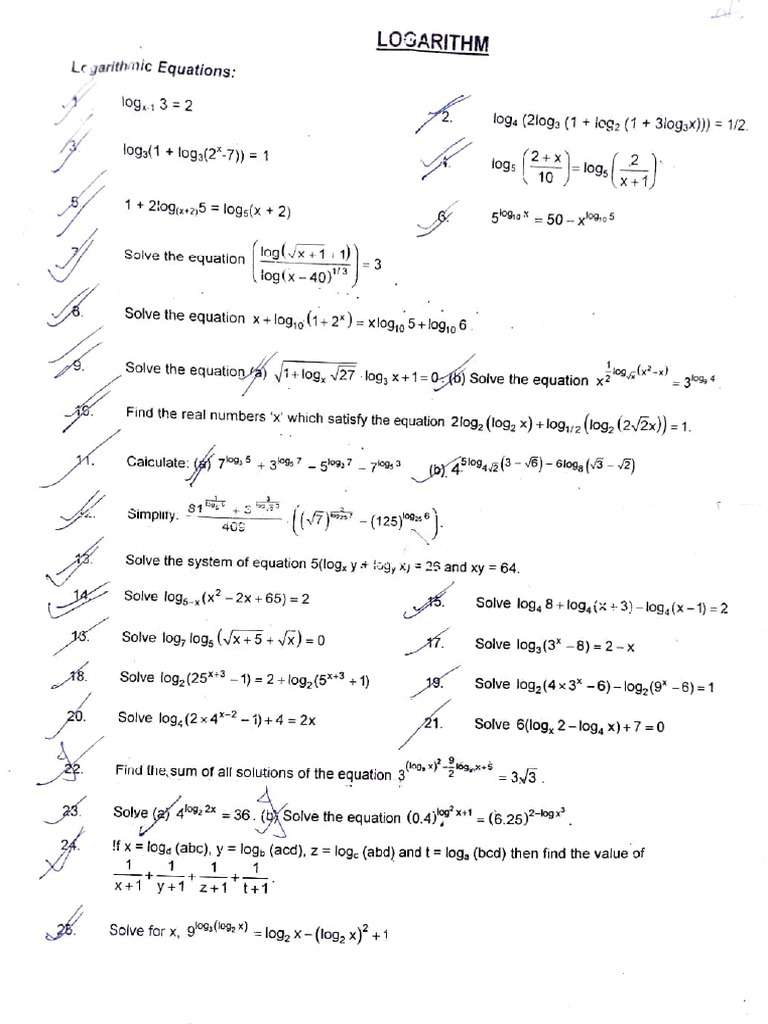 LOGARITHM
Logarithmic Equations:
1. log_{x-1} 3 = 2
2. log₄ (2log₃ (1 + log₂ (1 + 3log₃x))) = 1/2.
3. log₃(1 + log₃(2ˣ-7)) = 1
4. log₅ ((2 + x)/10) = log₅ (2/(x + 1))
5. 1 + 2log_{(x+2)}5 = log₅(x + 2)
6. 5^{log₁₀ x} = 50 – x^{log₁₀ 5}
7. Solve the equation (log(√(x + 1) + 1)/log(x – 40)^{1/3}) = 3
8. Solve the equation x + log₁₀(1 + 2ˣ) = xlog₁₀ 5 + log₁₀ 6.
9. Solve the equation (a) √(1 + logₓ √27) · log₃ x + 1 = 0. (b) Solve the equation x^{(1/2)log_{√x}(x² – x)} = 3^{log₉ 4}.
10. Find the real numbers 'x' which satisfy the equation 2log₂(log₂ x) + log_{1/2}(log₂(2√2x)) = 1.
11. Calculate: (a) 7^{log₃ 5} + 3^{log₅ 7} – 5^{log₃ 7} – 7^{log₅ 3} (b) 4^{5log_{4√2}(3 – √6) – 6log₈(√3 – √2)}
12. Simplify: (81^{1/log₅ 9} + 3^{3/log_{√6} 3})/409 · ((√7)^{2/log₂₅ 7} – (125)^{log₂₅ 6}).
13. Solve the system of equation 5(logₓ y + log_y x) = 26 and xy = 64.
14. Solve log_{5–x}(x² – 2x + 65) = 2
15. Solve log₄ 8 + log₄(x + 3) – log₄(x – 1) = 2
16. Solve log₇ log₅(√(x + 5) + √x) = 0
17. Solve log₃(3ˣ – 8) = 2 – x
18. Solve log₂(25^{x+3} – 1) = 2 + log₂(5^{x+3} + 1)
19. Solve log₂(4 × 3ˣ – 6) – log₂(9ˣ – 6) = 1
20. Solve log₄(2 × 4^{x–2} – 1) + 4 = 2x
21. Solve 6(logₓ 2 – log₄ x) + 7 = 0
22. Find the sum of all solutions of the equation 3^{(log₉ x)² – (9/2)log₉ x + 5} = 3√3.
23. Solve (a) 4^{log₂ 2x} = 36. (b) Solve the equation (0.4)^{log² x + 1} = (6.25)^{2 – log x³}.
24. If x = log_d (abc), y = log_b (acd), z = log_c (abd) and t = log_a (bcd) then find the value of
1/(x + 1) + 1/(y + 1) + 1/(z + 1) + 1/(t + 1).
25. Solve for x, 9^{log₃(log₂ x)} = log₂ x – (log₂ x)² + 1